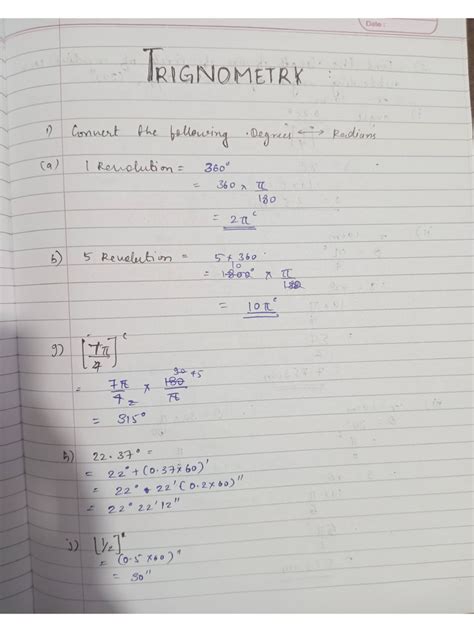 Date :
TRIGNOMETRY
1) Convert the following Degrees ⟷ Radians
(a) 1 Revolution = 360°
= 360 × π/180
= 2πᶜ
b) 5 Revolution = 5 × 360
= 1800° 10 × π/180
= 10πᶜ
g) [7π/4]ᶜ
= 7π/4 2 × 180 90 45/π
= 315°
h) 22.37° =
= 22° + (0.37×60)'
= 22° + 22' (0.2×60)"
= 22° 22' 12"
j) [1/2]'
= (0.5×60)"
= 30"